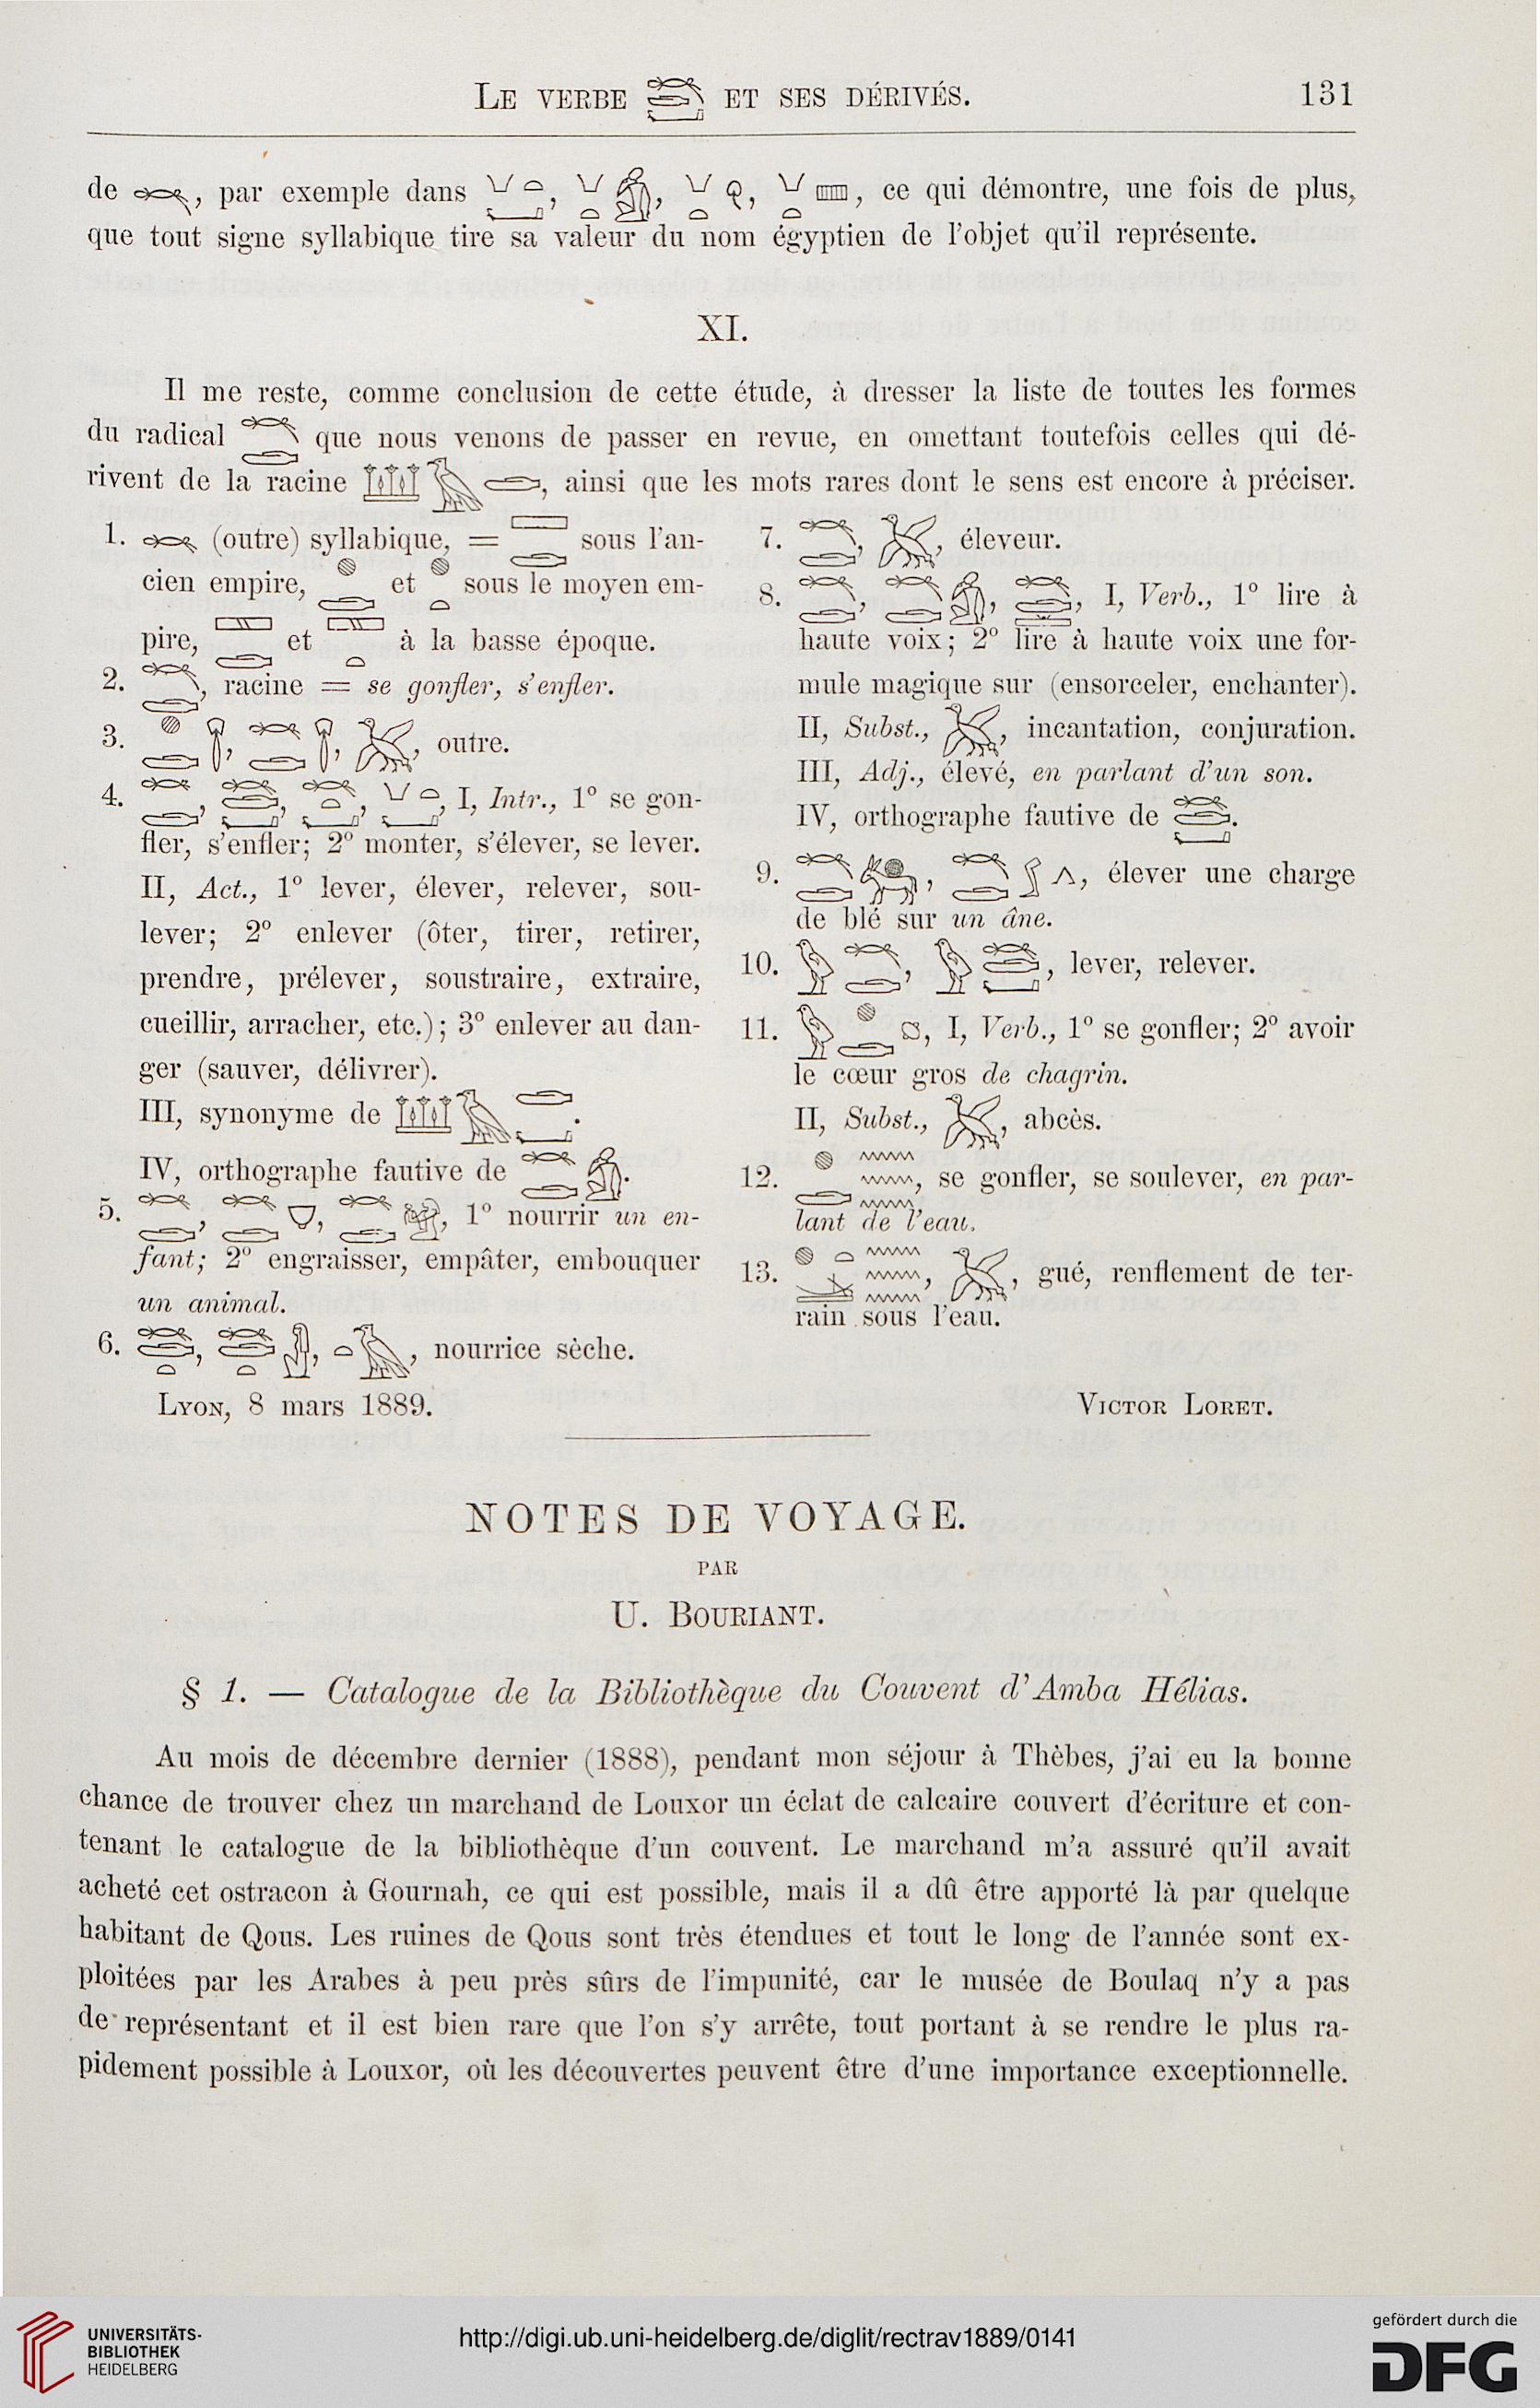 LE VERBE ET SES DÉRIVÉS. 131
de , par exemple dans , , , , ce qui démontre, une fois de plus,
que tout signe syllabique tire sa valeur du nom égyptien de l'objet qu'il représente.
XI.
Il me reste, comme conclusion de cette étude, à dresser la liste de toutes les formes
du radical que nous venons de passer en revue, en omettant toutefois celles qui dé-
rivent de la racine , ainsi que les mots rares dont le sens est encore à préciser.
1. (outre) syllabique, = sous l'an-
cien empire, et sous le moyen em-
pire, et à la basse époque.
2. , racine = se gonfler, s'enfler.
3. , , , outre.
4. , , , , I, Intr., 1° se gon-
fler, s'enfler; 2° monter, s'élever, se lever.
II, Act., 1° lever, élever, relever, sou-
lever; 2° enlever (ôter, tirer, retirer,
prendre, prélever, soustraire, extraire,
cueillir, arracher, etc.); 3° enlever au dan-
ger (sauver, délivrer).
III, synonyme de .
IV, orthographe fautive de .
5. , , , 1° nourrir un en-
fant; 2° engraisser, empâter, embouquer
un animal.
6. , , , nourrice sèche.
7. , , éleveur.
8. , , , I, Verb., 1° lire à
haute voix; 2° lire à haute voix une for-
mule magique sur (ensorceler, enchanter).
II, Subst., , incantation, conjuration.
III, Adj., élevé, en parlant d'un son.
IV, orthographe fautive de .
9. , , élever une charge
de blé sur un âne.
10. , , lever, relever.
11. , I, Verb., 1° se gonfler; 2° avoir
le cœur gros de chagrin.
II, Subst., , abcès.
12. , se gonfler, se soulever, en par-
lant de l'eau.
13. , , gué, renflement de ter-
rain sous l'eau.
LYON, 8 mars 1889. VICTOR LORET.
NOTES DE VOYAGE.
PAR
U. BOURIANT.
§ 1. — Catalogue de la Bibliothèque du Couvent d'Amba Hélias.
Au mois de décembre dernier (1888), pendant mon séjour à Thèbes, j'ai eu la bonne
chance de trouver chez un marchand de Louxor un éclat de calcaire couvert d'écriture et con-
tenant le catalogue de la bibliothèque d'un couvent. Le marchand m'a assuré qu'il avait
acheté cet ostracon à Gournah, ce qui est possible, mais il a dû être apporté là par quelque
habitant de Qous. Les ruines de Qous sont très étendues et tout le long de l'année sont ex-
ploitées par les Arabes à peu près sûrs de l'impunité, car le musée de Boulaq n'y a pas
de représentant et il est bien rare que l'on s'y arrête, tout portant à se rendre le plus ra-
pidement possible à Louxor, où les découvertes peuvent être d'une importance exceptionnelle.
UNIVERSITÄTS-
BIBLIOTHEK
HEIDELBERG
http://digi.ub.uni-heidelberg.de/diglit/rectrav1889/0141
gefördert durch die
DFG